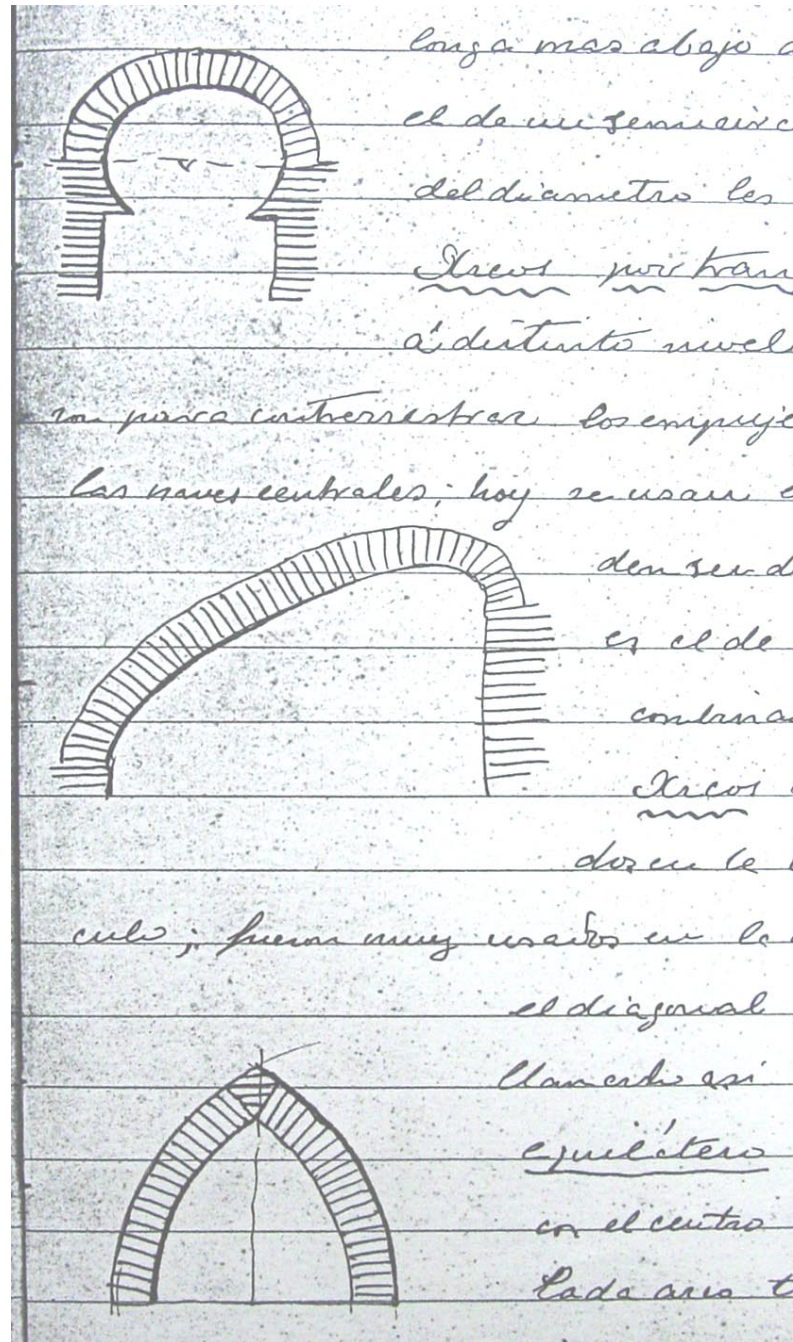 longa mas abajo d
el de un semicirc
del diametro les
Arcos por tran
á distinto nivel
ron para contrarrestrar los empuje
las naves centrales; hoy se usan e
den ser d
es el de
combina
Arcos
dos en le
culo; fueron muy usados en la
el diagonal
llamado asi
equilátero
con el centro
Cada arco t